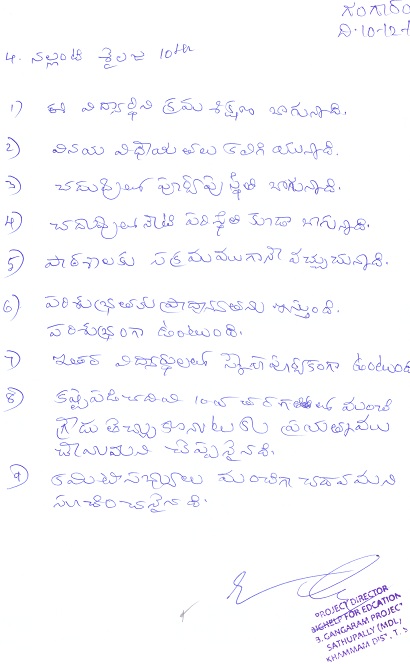 గంగారం
ది.10-12-
4. నల్లంటి శైలజ 10th
1) ఈ విద్యార్థిని క్రమ శిక్షణ బాగున్నది.
2) వినయ విధేయతలు కలిగి యున్నది.
3) చదువులో పూర్వపు స్థితి బాగున్నది.
4) చదువులో నేటి పరిస్థితి కూడా బాగున్నది.
5) పాఠశాలకు సక్రమముగానే వచ్చుచున్నది.
6) పరిశుభ్రతకు ప్రాధాన్యతను ఇస్తుంది.
పరిశుభ్రంగా ఉంటుంది.
7) ఇతర విద్యార్థులతో స్నేహపూర్వకంగా ఉంటుంది
8) కష్టపడి చదివి 10వ తరగతిలో మంచి
గ్రేడు తెచ్చుకొనుటకు ప్రయత్నము
చేయుమని చెప్పనైనది.
9) కమిటిసభ్యులు మంచిగా చదవమని
సూచించనైనది.
PROJECT DIRECTOR
BIGHELP FOR EDCATION
3. GANGARAM PROJEC
SATHUPALLY (MDL)
KHAMMAM DIST. T. S